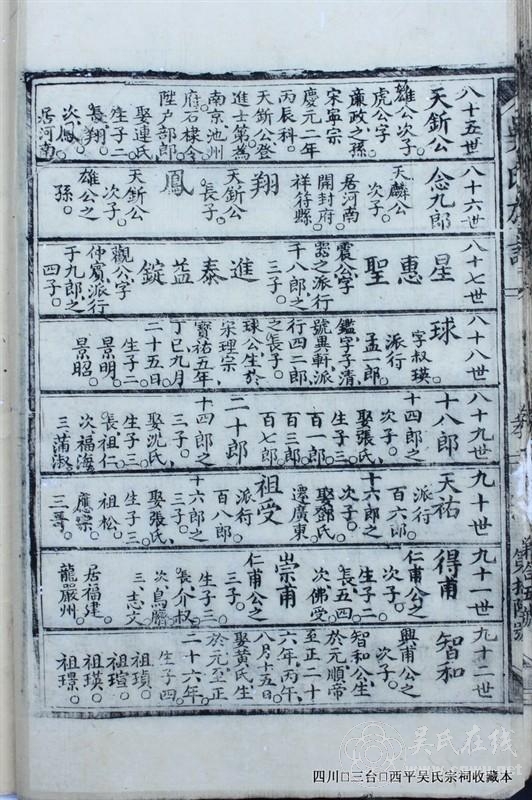 八十五世
天斱公
雄公次子
虎公字
廉政之孫
宋寧宗
慶元二年
丙辰科。
天斱公登
進士第為
南京池州
府石棣令
陞户部郎
娶連氏
生子二
長翔。
次鳳
居河南
八十六世
念九郎
天麟公
次子。
居河南
開封府
祥符縣
翔
天斱公
長子。
鳳
天斱公
次子
雄公之
孫。
八十七世
星
惠
聖
震公字
器之派行
千八郎之
三子。
進
泰
益
錠
觀公字
仲賓派行
于九郎之
四子。
八十八世
球
字叔瑛
派行
孟一郎。
鑑字子清
號異軒派
行四二郎
之長子。
球公生於
宋理宗
寳祐五年
丁巳九月
二十五日。
生子二
景明。
景昭。
八十九世
十八郎
十四郎之
次子。
娶張氏
生子三
百一郎
百三郎
百七郎
二十郎
十四郎之
三子。
娶沈氏
生子三
長祖仁。
次福海
三蒲淑
九十世
天祐
派行
百六郎
十六郎之
次子。
娶鄧氏
遷廣東
祖受
派行
百八郎
十六郎之
三子。
娶張氏
生子三
祖松。
應宗
三哥。
九十一世
得甫
仁甫公之
次子
生子二
長五四
次佛受
崇甫
仁甫公之
三子。
生子三
長介叔
三、志文
居福建
龍巖州。
九十二世
智和
興甫公之
次子。
智和公生
於元順帝
至正二十
六年丙午
八月十五日。
娶黃氏生
於元至正
二十六年。
生子四
祖瑣。
祖瑄。
祖瑛。
祖璟。
吴氏在线
四川□三台□西平吴氏宗祠收藏本